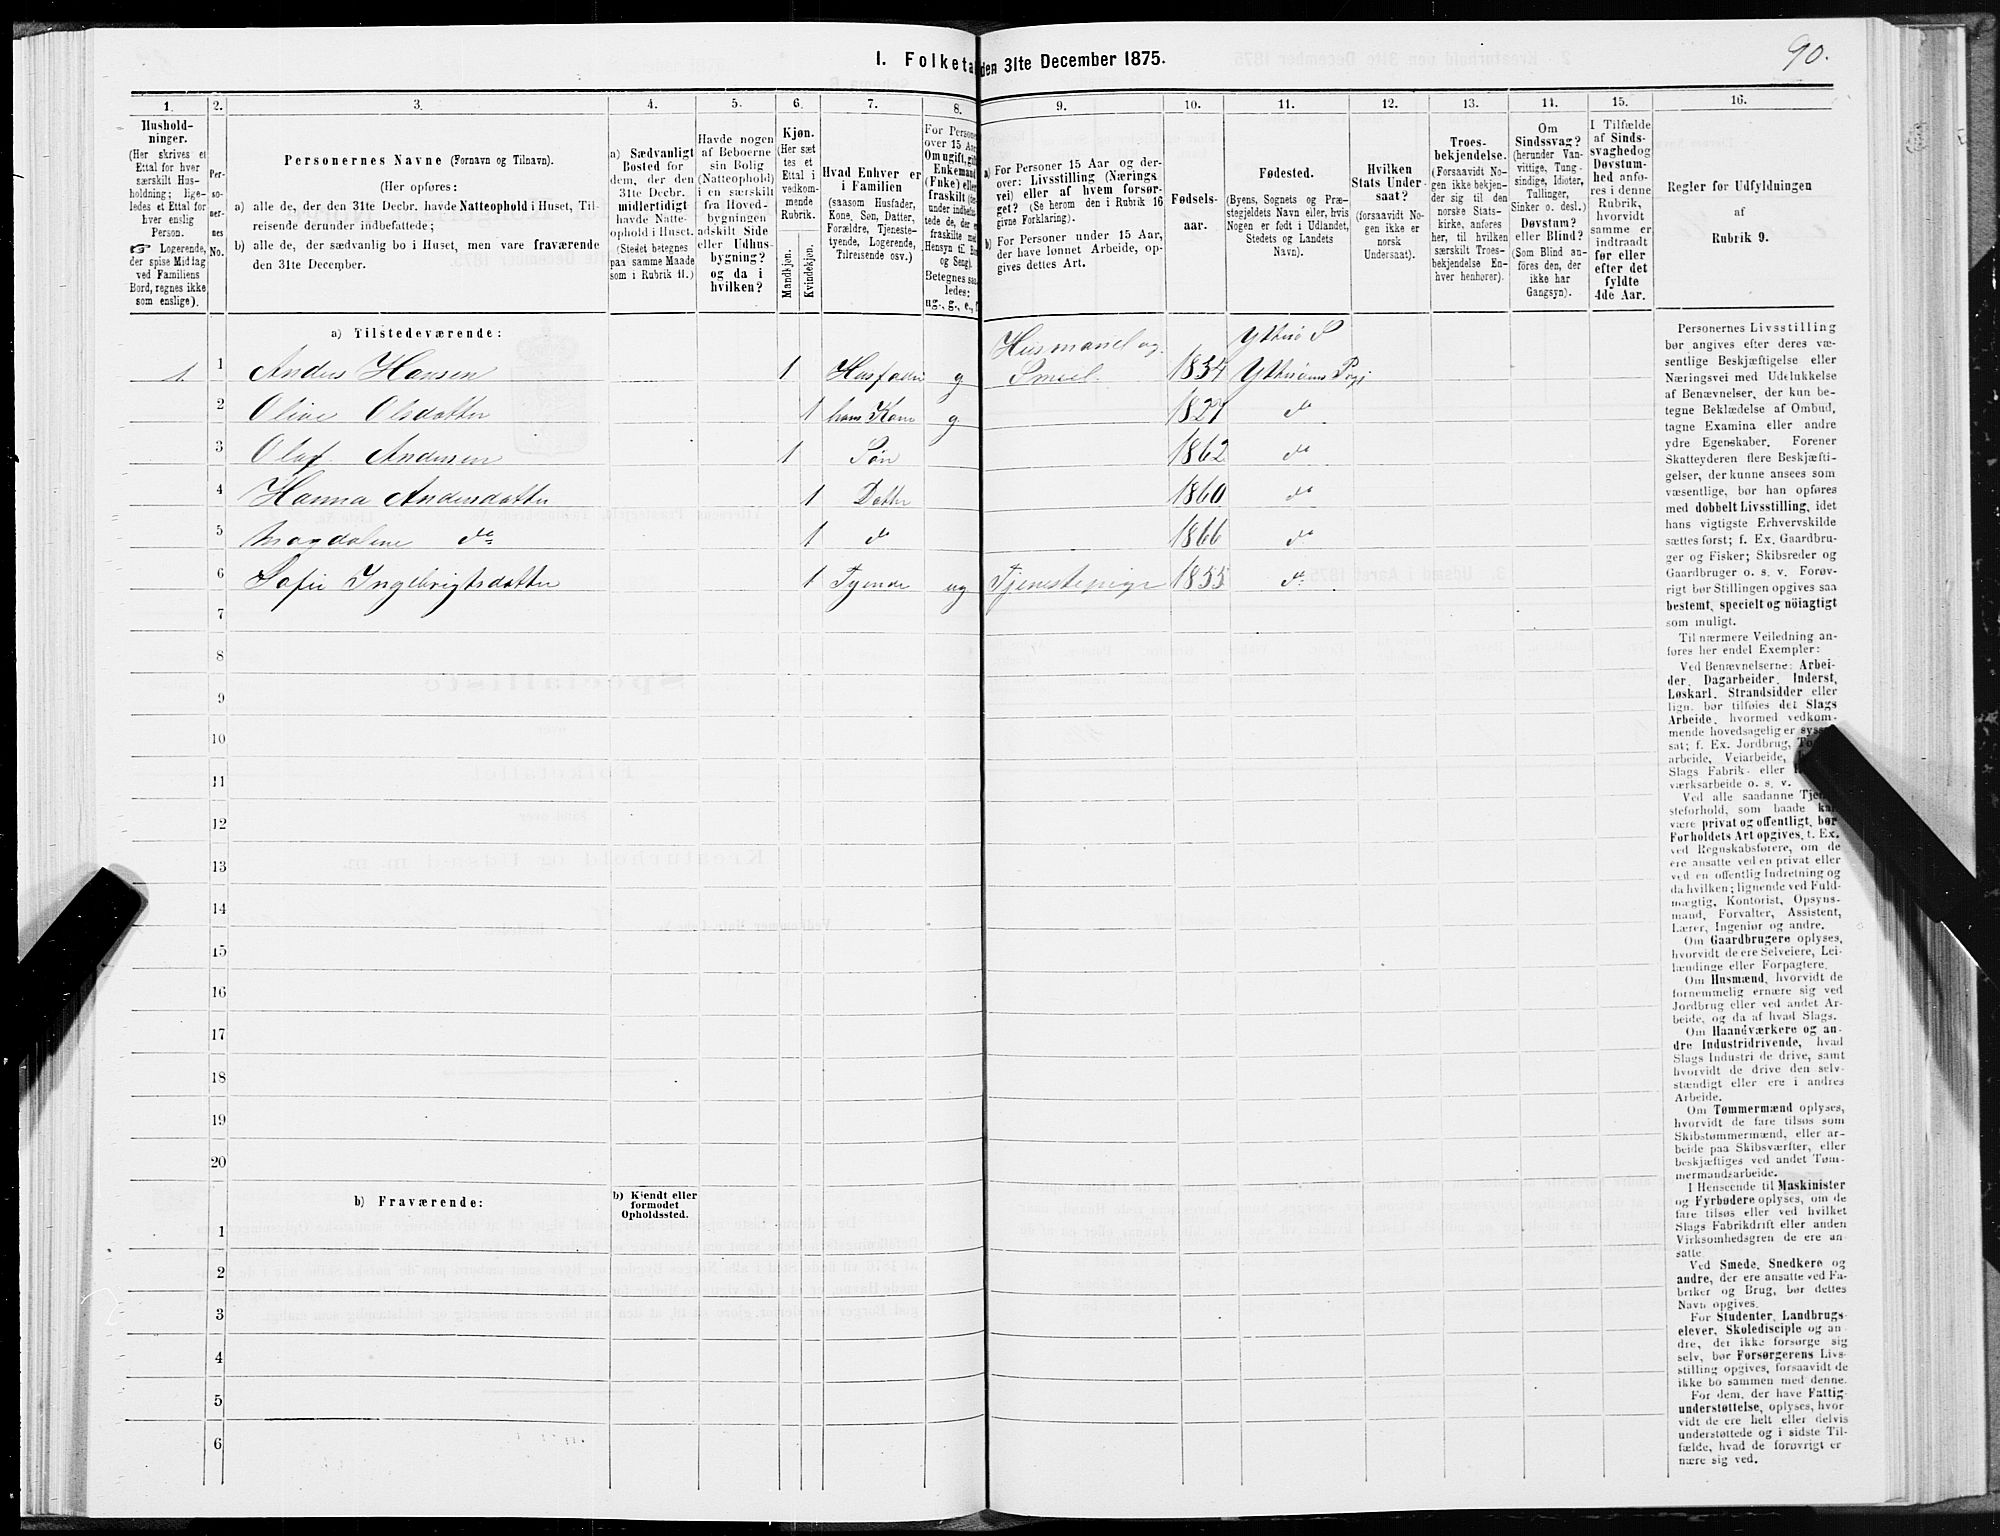 90.
I. Folketa den 31te December 1875.
1. 2. 3. 4. 5. 6. 7. 8. 9. 10. 11. 12. 13. 14. 15. 16.
Hushold-
ninger.
(Her skrives et
Ettal for hver
særskilt Hus-
holdning; lige-
ledes et Ettal for
hver enslig
Person.
☞ Logerende,
der spise Middag
ved Familiens
Bord, regnes ikke
som enslige).
Per-
so-
ner-
nes
No.
Personernes Navne (Fornavn og Tilnavn).
(Her opføres:
a) alle de, der den 31te Decbr. havde Natteophold i Huset, Til-
reisende derunder indbefattede;
b) alle de, der sædvanlig bo i Huset, men vare fraværende
den 31te December.
a) Sædvanligt
Bosted for
dem, der den
31te Decbr.
midlertidigt
havde Natte-
ophold i Huset.
(Stedet betegnes
paa samme Maade
som i Rubrik 11.)
Havde nogen
af Beboerne
sin Bolig
(Natteophold)
i en særskilt
fra Hoved-
bygningen
adskilt Side
eller Udhus-
bygning?
og da i
hvilken?
Kjøn.
(Her sæt
tes et
Ettal i
vedkom-
mende
Rubrik.
Mandkjøn.
Kvindekjøn.
Hvad Enhver er
i Familien
(saasom Husfader,
Kone, Søn, Datter,
Forældre, Tjeneste-
tyende, Logerende,
Tilreisende osv.)
For Persone
over 15 Aar
Om ugift, gift
Enkemand
(Enke) eller
fraskilt (der-
under indbefat-
tede de, der e
fraskilte med
Hensyn til Bor
og Seng).
Betegnes saa
ledes:
ug., g., e., f
a) For Personer 15 Aar og der-
over: Livsstilling (Nærings
vei) eller af hvem forsør-
get? (Se herom den i Rubrik 16
givne Forklaring).
b) For Personer under 15 Aar,
der have lønnet Arbeide, op-
gives dettes Art.
Fødsels-
aar.
Fødested.
(Byens, Sognets og Præ-
stegjeldets Navn eller, hvis
Nogen er født i Udlandet,
Stedets og Landets
Navn).
Hvilken
Stats Under-
saat?
(forsaavidt No-
gen ikke er
norsk
Undersaat).
Troes-
bekjendelse.
(Forsaavidt No-
gen ikke bekjen-
der sig til den
norske Stats-
kirke, anføres
her, til hvilken
særskilt Troes-
bekjendelse En-
hver henhører).
Om
Sindssvag?
(herunder Van-
vittige, Tung-
sindige, Idioter,
Tullinger,
Sinker o. desl.)
Døvstum?
eller Blind?
(Som Blind an-
føres den, der
ikke har
Gangsyn).
I Tilfælde
af Sinds-
svaghed og
Døvstum-
hed anfø-
res i denne
Rubrik,
hvorvidt
samme er
indtraadt
før eller
efter det
fyldte
4de Aar.
Regler for Udfyldningen
af
Rubrik 9.
a) Tilstedeværende:
1. 1 Anders Hansen 1 Husfader g Husmand og Smed. 1834 Yttrø S Ytterøens Prgj
2 Oline Olsdatter 1 hans Kone g 1827 do
3 Olaf Andersen 1 Søn 1862 do
4 Hanna Andersdatter 1 Datter 1860 do
5 Magdalene do 1 do 1866 do
6 Sofie Ingebrigtsdatter 1 Tyende ug Tjenestepige 1855 do
7
8
9
10
11
12
13
14
15
16
17
18
19
20
b) Fraværende:
b) Kjendt eller
formodet
Opholdssted.
1
2
3
4
5
6
Personernes Livsstilling
bør angives efter deres væ-
sentlige Beskjæftigelse eller
Næringsvei med Udelukkelse
af Benævnelser, der kun be-
tegne Beklædelse af Ombud,
tagne Examina eller andre
ydre Egenskaber. Forener
Skatteyderen flere Beskjæfti-
gelser, der kunne ansees som
væsentlige, bør han opføres
med dobbelt Livsstilling, idet
hans vigtigste Erhvervskilde
sættes først; f. Ex. Gaardbru-
ger og Fisker; Skibsreder og
Gaardbruger o. s. v. Forøv-
rigt bør Stillingen opgives saa
bestemt, specielt og nöiagtigt
som muligt.
Til nærmere Veiledning an-
føres her endel Exempler:
Ved Benævnelserne: Arbei-
der, Dagarbeider, Inderst,
Løskarl, Strandsidder eller
lign. bør tilføies det Slags
Arbeide, hvormed vedkom-
mende hovedsagelig er sysse
sat; f. Ex. Jordbrug, To
arbeide, Veiarbeide,
Slags Fabrik- eller
værksarbeide o. s. v.
Ved alle saadanne Tjene
steforhold, som baade ka
være privat og offentligt, bør
Forholdets Art opgives, t. Ex.
ved Regnskabsførere, om de
ere ansatte ved en privat eller
ved en offentlig Indretning og
da hvilken; lignende ved Fuld-
mægtig, Kontorist, Opsyns-
mand, Forvalter, Assistent,
Lærer, Ingeniør og andre.
Om Gaardbrugere oplyses,
hvorvidt de ere Selveiere, Lei-
lændinge eller Forpagtere.
Om Husmænd, hvorvidt de
fornemmelig ernære sig ved
Jordbrug eller ved andet Ar-
beide, og da af hvad Slags.
Om Haandværkere og an-
dre Industridrivende, hvad
Slags Industri de drive, samt
hvorvidt de drive den selv-
stændigt eller ere i andres
Arbeide.
Om Tømmermænd oplyses,
hvorvidt de fare tilsøs som
Skibstømmermænd, eller ar-
beide paa Skibsværfter, eller
beskjæftiges ved andet Tøm-
mermandsarbeide.
I Henseende til Maskinister
og Fyrbødere oplyses, om de
fare tilsøs eller ved hvilket
Slags Fabrikdrift eller anden
Virksomhedsgren de ere an-
satte.
Ved Smede, Snedkere og
andre, der ere ansatte ved Fa-
briker og Brug, bør dettes
Navn opgives.
For Studenter, Landbrugs-
elever, Skoledisciple og an-
dre, der ikke forsørge sig
selv, bør Forsørgerens Livs-
stilling opgives, forsaavidt de
ikke bo sammen med denne.
For dem, der have Fattig-
understøttelse, oplyses, hvor
vidt de ere helt eller delvis
understøttede og i sidste Til-
fælde, hvad de forøvrigt er
nære sig ved.